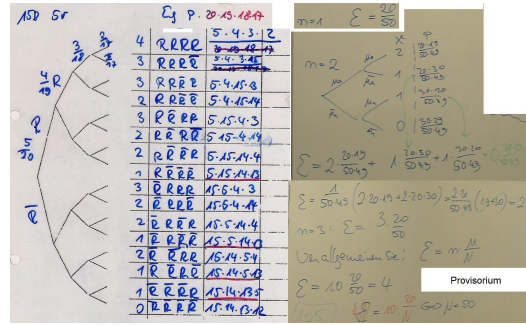 15□ 5r
Eg P. 20·19·18·17
4 RRRR 5·4·3·2
3 RRRR̅ 5·4·3·15
3 RRR̅R 5·4·15·3
2 RRR̅R̅ 5·4·15·14
3 RR̅RR 5·15·4·3
2 RR̅RR̅ 5·15·4·14
2 RR̅R̅R 5·15·14·4
1 RR̅R̅R̅ 5·15·14·13
3 R̅RRR 15·5·4·3
2 R̅RRR̅ 15·5·4·14
2 R̅RR̅R 15·5·14·4
1 R̅RR̅R̅ 15·5·14·13
2 R̅R̅RR 15·14·5·4
1 R̅R̅RR̅ 15·14·5·13
1 R̅R̅R̅R 15·14·13·5
0 R̅R̅R̅R̅ 15·14·13·12
5/20 R
R̅
4/19 R
3/18
n=1 Ɛ = 20/50
n=2
X P
2 20·19/50·49
1 20·30/50·49
1 30·20/50·49
0 30·29/50·49
Ɛ = 2·20·19/50·49 + 1·20·30/50·49 + 1·30·20/50·49 + 0·30·29/50·49
Ɛ = 1/50·49 (2·20·19+2·20·30) = 2·20/50·49 (19+30) = 2
n=3: Ɛ = 3·20/50
Verallgemeinert: Ɛ = n·M/N
Ɛ = 10 20/50 = 4
Provisorium
4 = 10·20/N ⇔ N=50